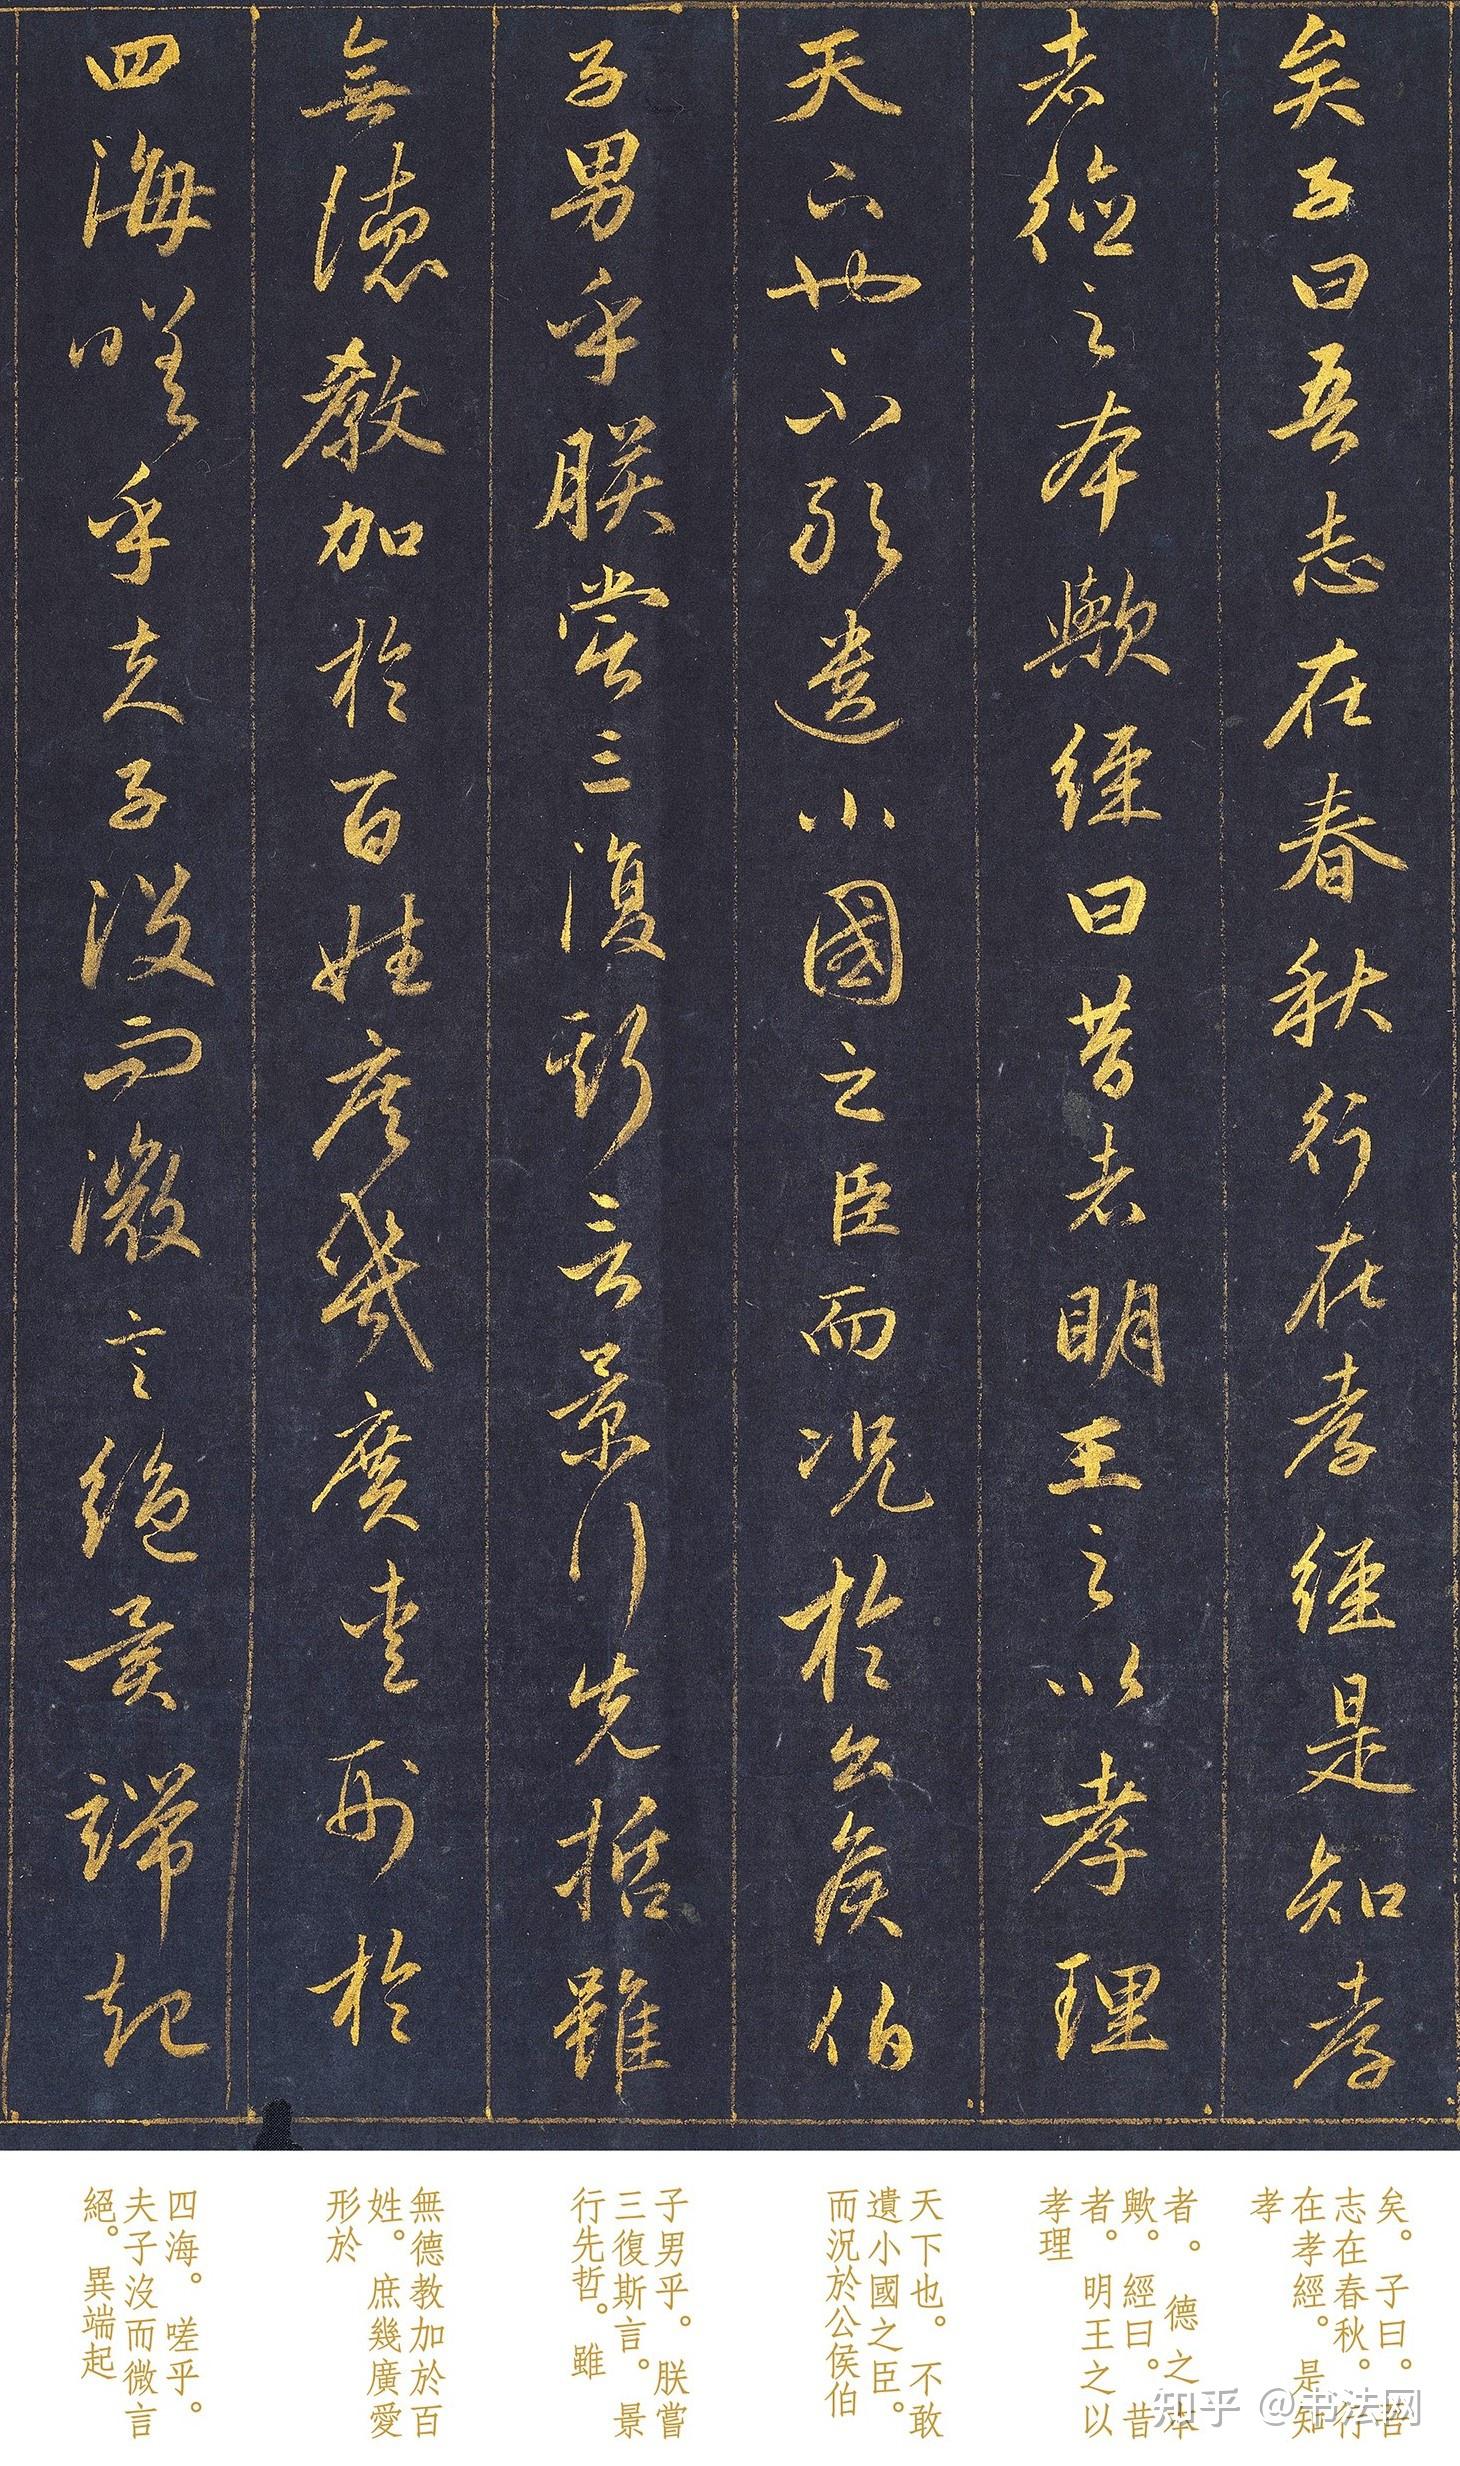 矣子曰吾志在春秋行在孝經是知孝
者德之本歟經曰昔者明王之以孝理
天下也不敢遺小國之臣而況於公侯伯
子男乎朕嘗三復斯言景行先哲雖
無德教加於百姓庶幾廣愛形於
四海嗟乎夫子沒而微言絕異端起
矣。子曰。吾
志在春秋。行
在孝經。是知
孝
者。德之本
歟。經曰。昔
者。明王之以
孝理
天下也。不敢
遺小國之臣。
而況於公侯伯
子男乎。朕嘗
三復斯言。景
行先哲。雖
無德教加於百
姓。庶幾廣愛
形於
四海。嗟乎。
夫子沒而微言
絕。異端起
知乎 @书法网